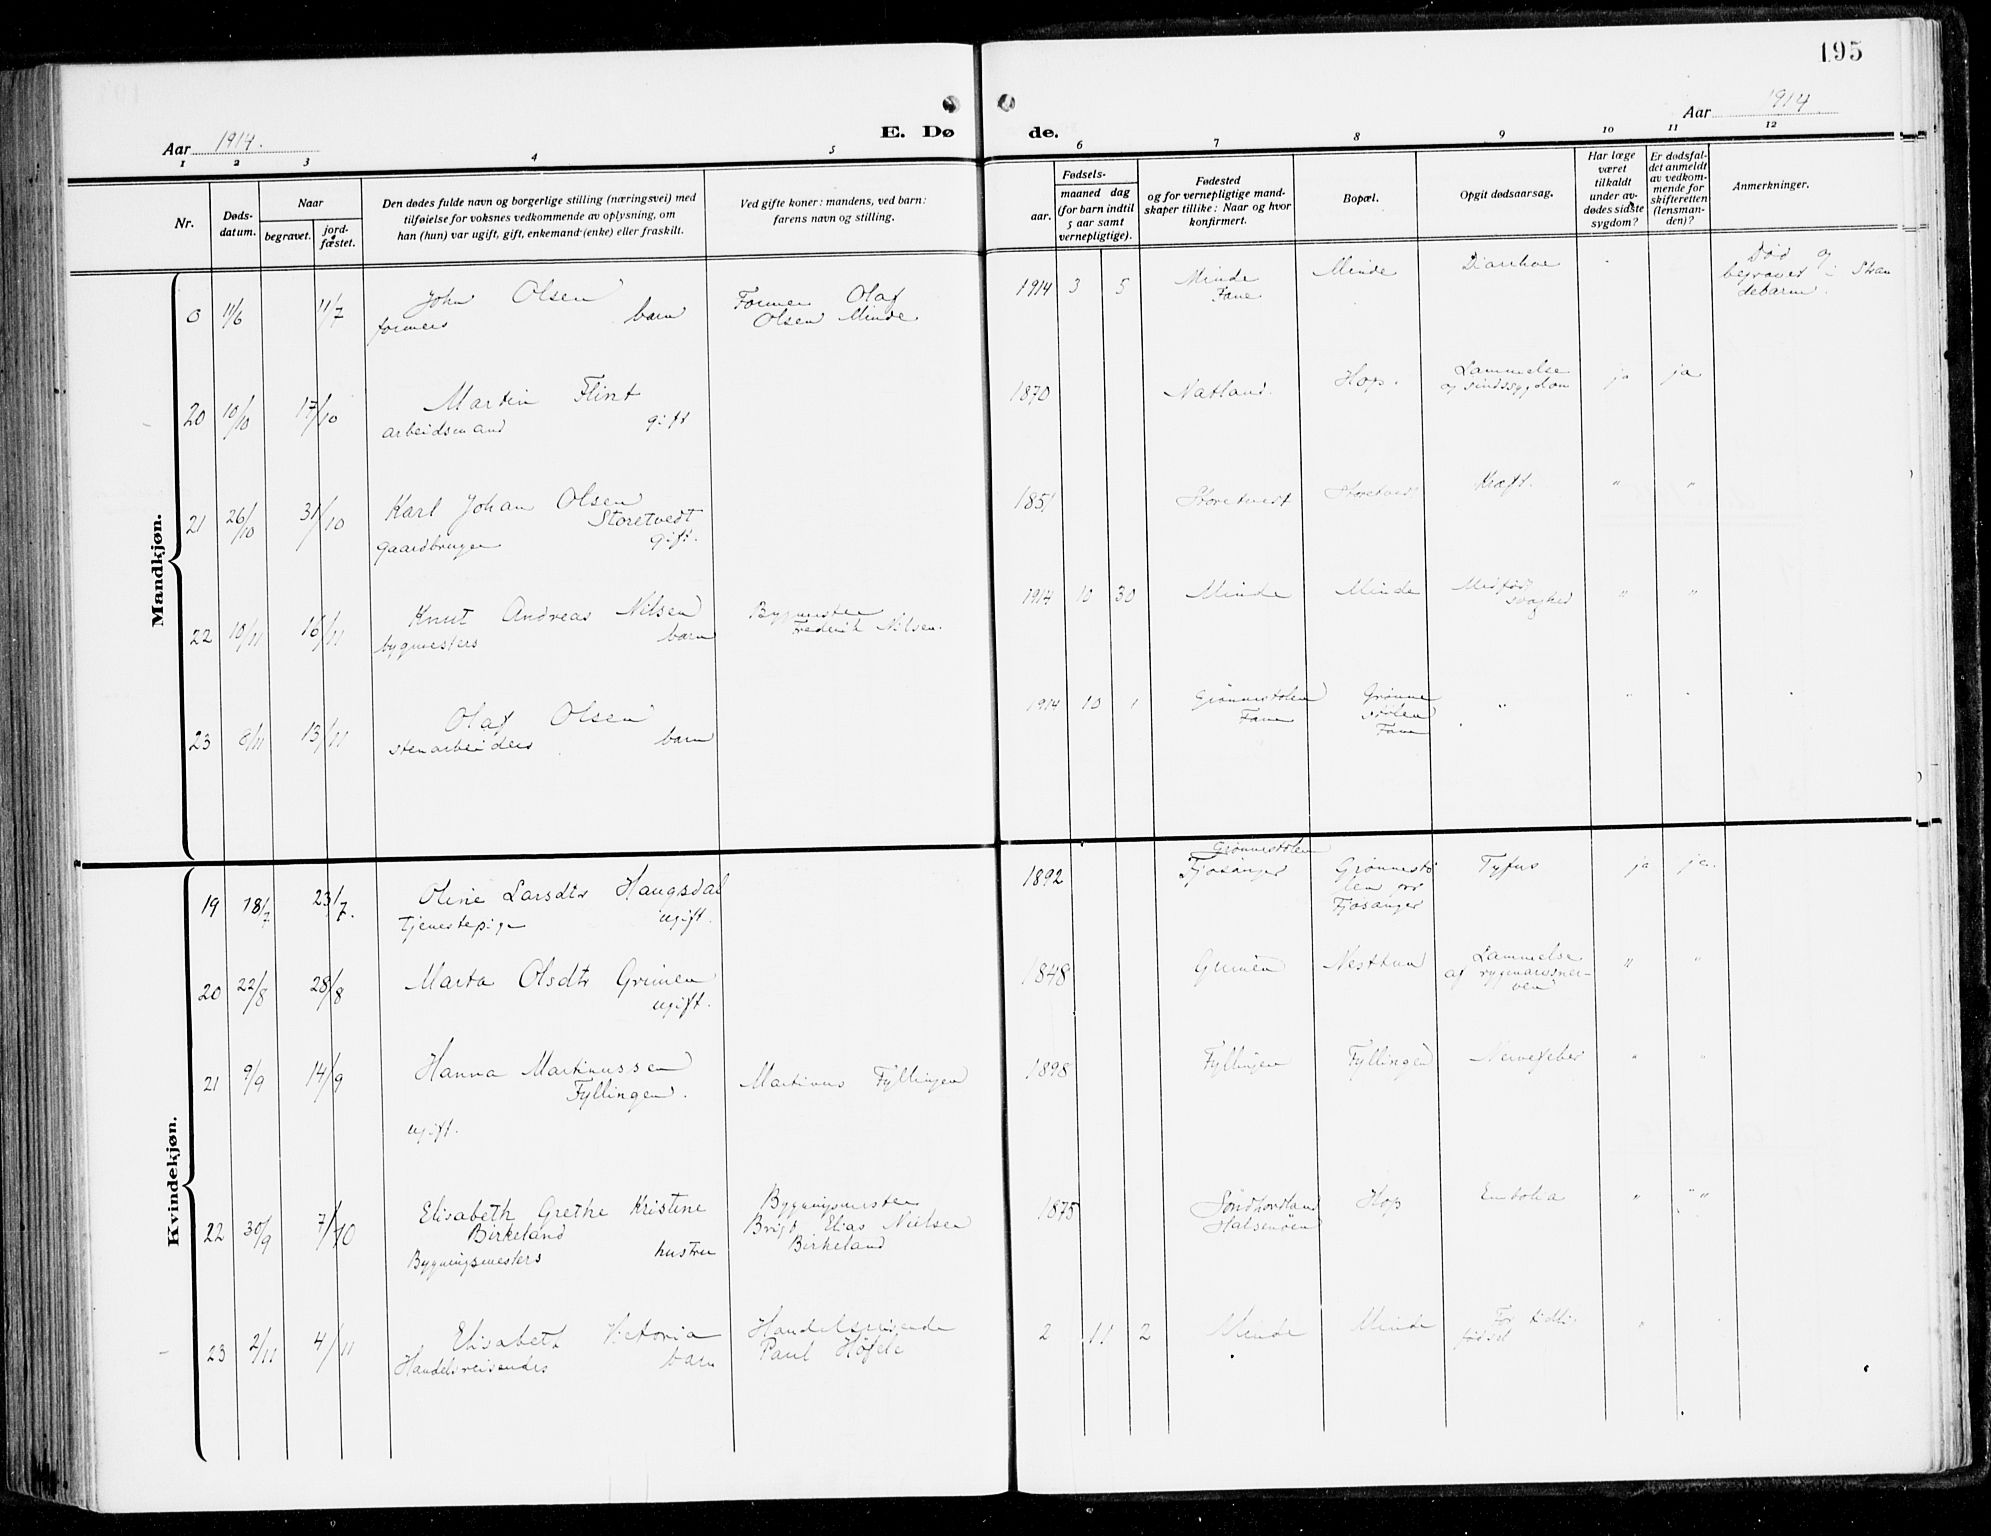 195
Aar 1914.
E. Dø
de.
Aar 1914
1 2 3 4 5
6 7 8 9 10 11 12
Nr.
Døds-
datum.
Naar
begravet.
jord-
fæstet.
Den dødes fulde navn og borgerlige stilling (næringsvei) med
tilføielse for voksnes vedkommende av oplysning, om
han (hun) var ugift, gift, enkemand (enke) eller fraskilt.
Ved gifte koner: mandens, ved barn:
farens navn og stilling.
Fødsels-
aar.
maaned dag
(for barn indtil
5 aar samt
vernepligtige).
Fødested
og for vernepligtige mand-
skaper tillike: Naar og hvor
konfirmert.
Bopæl.
Opgit dødsaarsag.
Har læge
været
tilkaldt
under av-
dødes sidste
sygdom?
Er dødsfal-
det anmeldt
av vedkom-
mende for
skifteretten
(lensman-
den)?
Anmerkninger.
Mandkjøn.
0 11/6 11/7 John Olsen
formers barn
Former Olaf
Olsen Minde
1914 3 5 Minde
Fane
Minde Diarrhoe
Død og
begravet i Stran
debarm.
20 10/10 17/10 Martin Flint
arbeidsmand gift
1870 Natland. Hop. Lammelse
og sindssygdom
ja ja
21 26/10 31/10 Karl Johan Olsen
Storetvedt
gaardbruger gift.
1851 Storetvedt Storetvedt Kræft. " "
22 10/11 16/11 Knut Andreas Nilsen
bygmesters barn
Bygmester
Frederik Nilsen.
1914 10 30 Minde Minde Medfødt
svaghed
" "
23 /11 13/11 Olaf Olsen
stenarbeiders barn
1914 10 1 Grønnestølen
Fane
Grønne
stølen
Fane
" "
Kvindekjøn.
19 18/7 23/7. Oline Larsdtr Haugsdal
tjenestepige ugift.
1892 Grønnestølen
Fjøsanger
Grønnestø
len pr
Fjøsanger
Tyfus ja ja.
20 22/8 28/8 Marta Olsdtr Grimen
ugift.
1848 Grimen Nesttun Lammelse
af rygmarvsner-
ven
" "
21 9/9 14/9 Hanna Martinussen
Fyllingen.
ugift.
Martinus Fyllingen
1898 Fyllingen Fyllingen Nervefeber " "
22 30/9 7/10 Elisabeth Grethe Kristine
Birkeland
Bygningsmesters hustru
Bygningsmester
Brigt Elias Nielsen
Birkeland
1875 Søndhordland
Halsenøen
Hop Embolia " "
23 2/11 4/11 Elisabeth Victoria
Handelsreisendes barn
Handelsreisende
Paul
2 11 2 Minde Minde For tidlig
fødsel
"